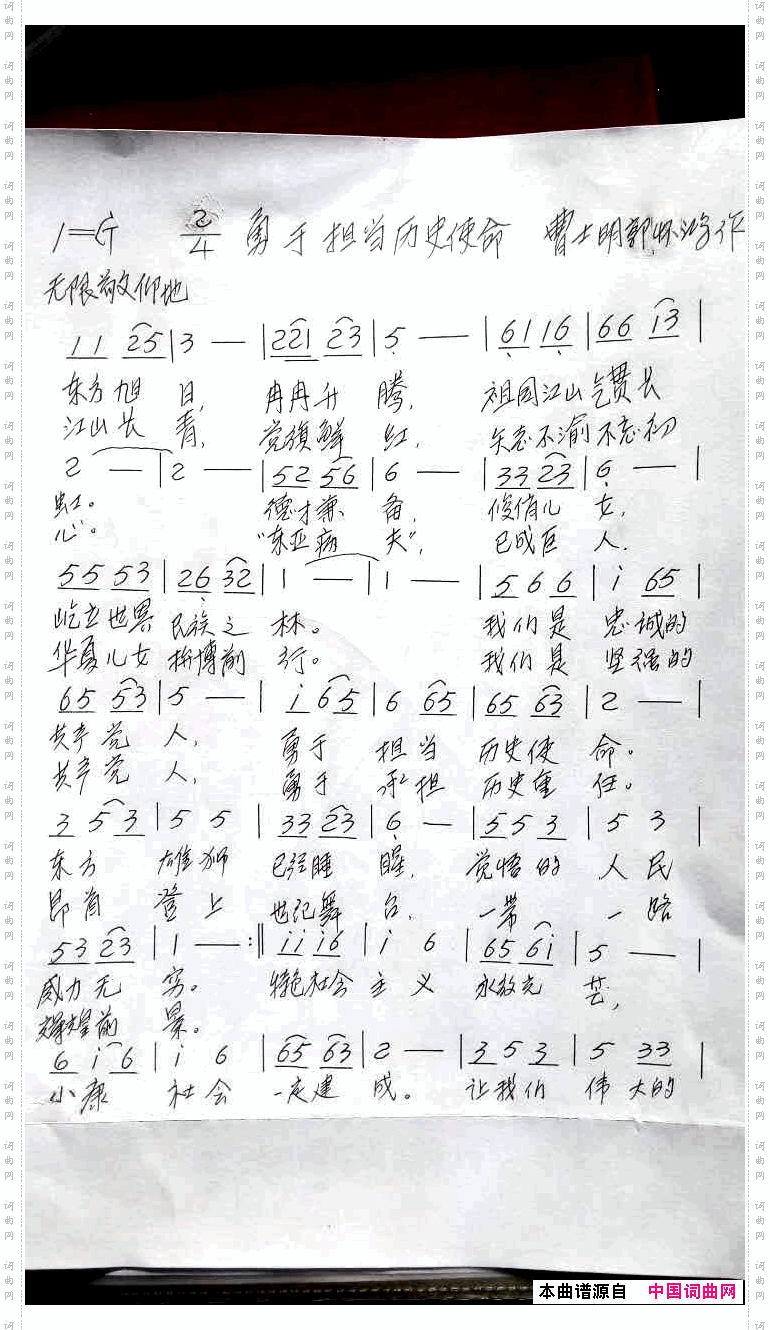 1=G 2/4 勇于担当历史使命 曹士明郭怀鸿作
无限敬仰地
11 25|3 —|221 23|5 —|61 16|66 13|
东方旭 日, 冉冉升 腾, 祖国江山气贯长
江山长 青, 党旗鲜 红, 矢志不渝不忘初
2 —|2 —|52 56|6 —|33 23|6 —|
虹。 德才兼 备, 俊俏儿 女,
心。 "东亚病 夫", 已成巨 人.
55 53|26 32|1 —|1 —|5 6 6|i 65|
屹立世界 民族之 林。 我们是 忠诚的
华夏儿女 拚博前 行。 我们是 坚强的
65 53|5 —|i 65|6 65|65 63|2 —|
共产党 人, 勇于 担当 历史使 命。
共产党 人, 勇于 承担 历史重 任。
3 53|5 5|33 23|6 —|55 3|5 3|
东方 雄狮 已经睡 醒, 觉悟的 人民
昂首 登上 世纪舞 台, 一带 一路
53 23|1 —:‖ii i6|i 6|65 6i|5 —|
威力无 穷。 特色社会 主义 永放光 芒,
辉煌前 景。
6 i6|i 6|65 63|2 —|3 5 3|5 33|
小康 社会 一定建 成。 让我们 伟大的
本曲谱源自 中国词曲网